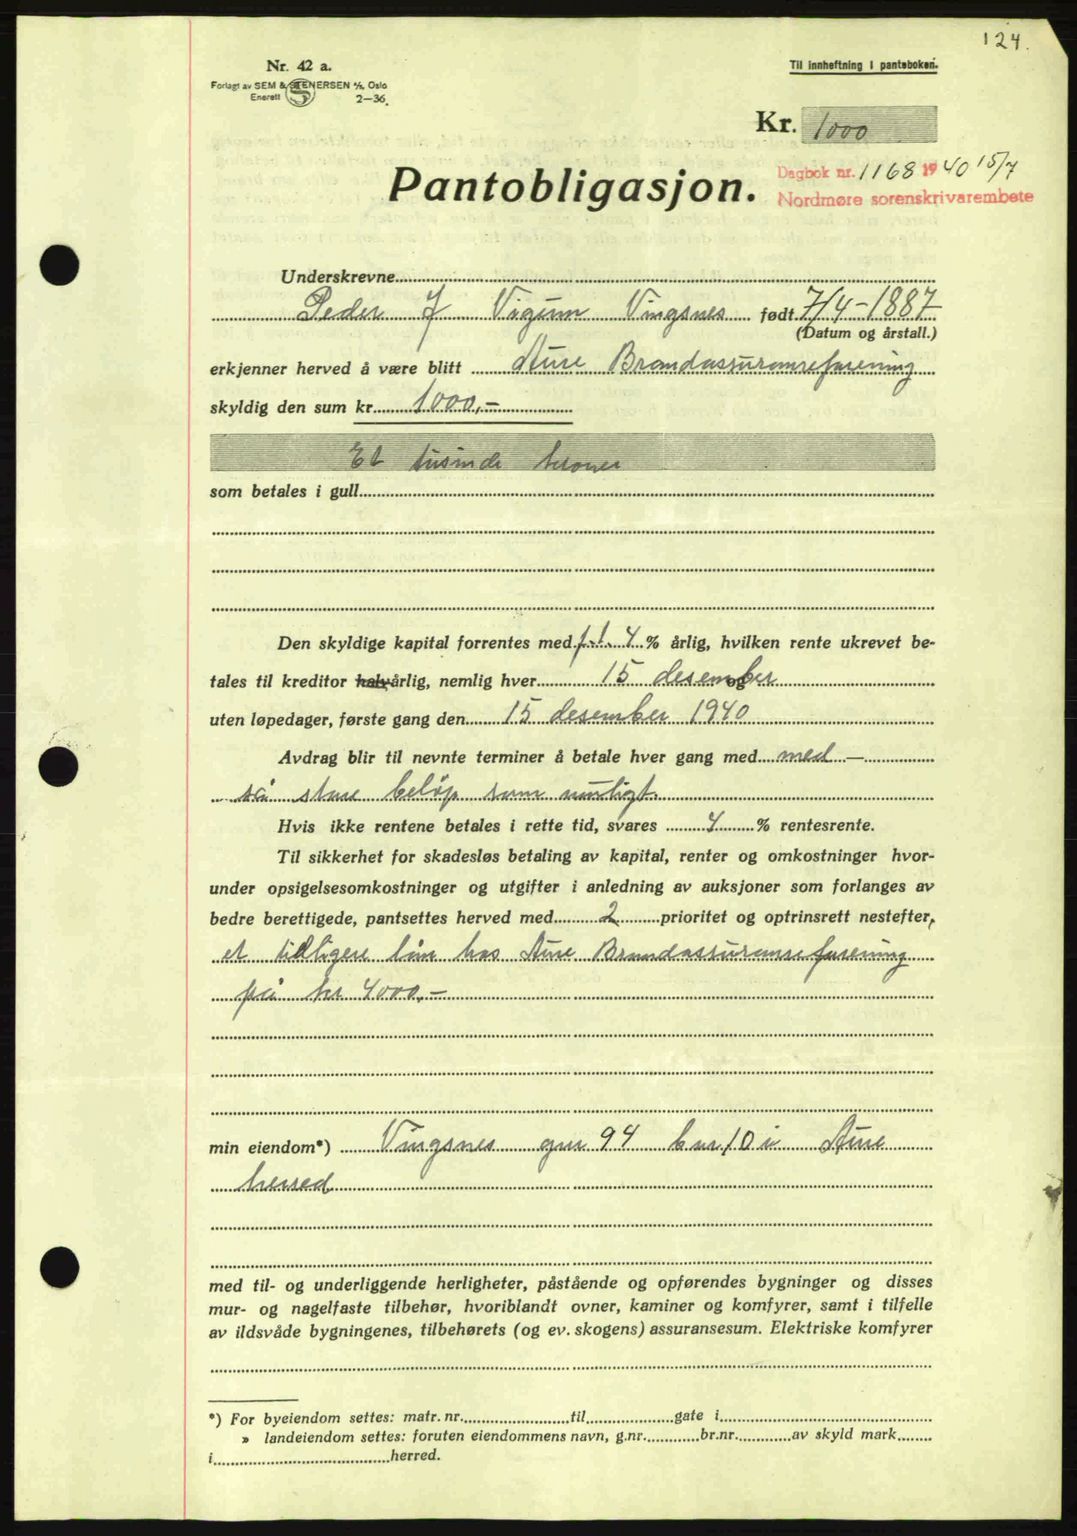 124.
Nr. 42 a.
Til innheftning i panteboken.
Forlagt av SEM & STENERSEN A/S, Oslo
Enerett 2-36.
Kr. 1000
Dagbok nr. 1168 1940 15/7
Nordmøre sorenskrivarembete
Pantobligasjon.
Underskrevne
Peder J Vigum Vingsnes født 7/4-1887
(Datum og årstall.)
erkjenner herved å være blitt Aure Brandassuranseforening
skyldig den sum kr. 1000,-
Et tusinde kroner
som betales i gull
Den skyldige kapital forrentes med p.t. 4 % årlig, hvilken rente ukrevet be-
tales til kreditor halvårlig, nemlig hver 15 desember og
uten løpedager, første gang den 15 desember 1940
Avdrag blir til nevnte terminer å betale hver gang med med —
så store beløp som muligt.
Hvis ikke rentene betales i rette tid, svares 4 % rentesrente.
Til sikkerhet for skadesløs betaling av kapital, renter og omkostninger hvor-
under opsigelsesomkostninger og utgifter i anledning av auksjoner som forlanges av
bedre berettigede, pantsettes herved med 2 prioritet og optrinsrett nestefter,
et tidligere lån hos Aure Brandassuranseforening
på kr 4000,-
min eiendom*) Vingsnes gnr 94 bnr, 10 i Aure
herred
med til- og underliggende herligheter, påstående og opførendes bygninger og disses
mur- og nagelfaste tilbehør, hvoriblandt ovner, kaminer og komfyrer, samt i tilfelle
av ildsvåde bygningenes, tilbehørets (og ev. skogens) assuransesum. Elektriske komfyrer
*) For byeiendom settes: matr. nr. til gate i
» landeiendom settes: foruten eiendommens navn, g.nr. br.nr. av skyld mark
i herred.